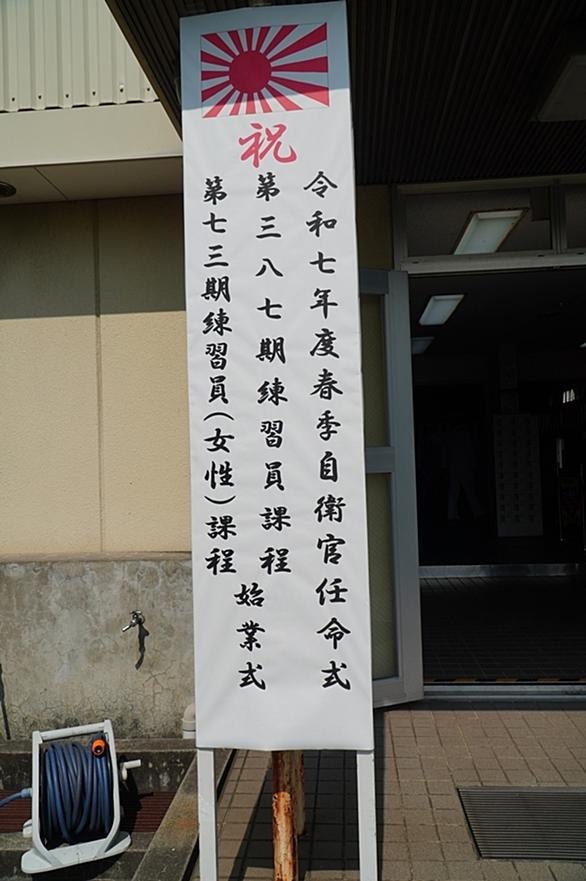 祝
令和七年度春季自衛官任命式
第三八七期練習員課程
第七三期練習員(女性)課程
始業式